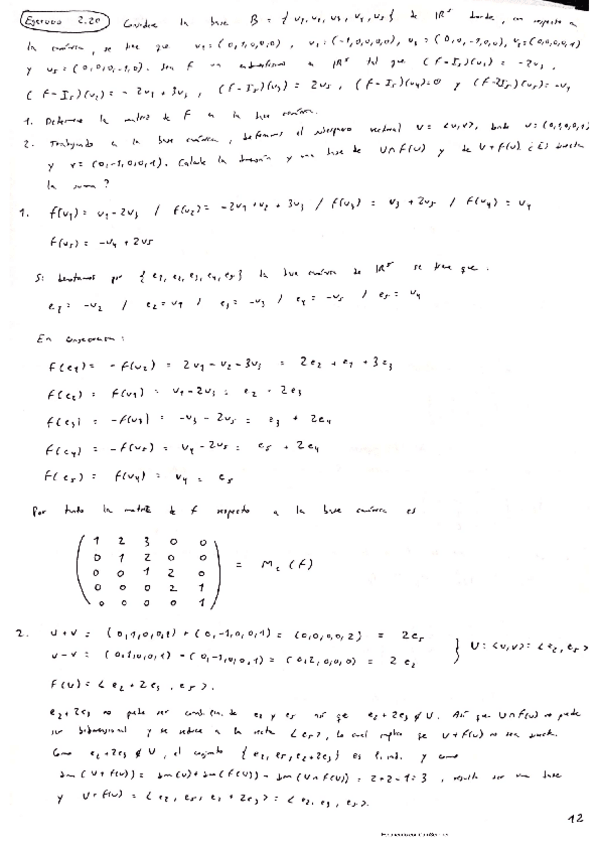 Ejercicio 2.20 Considera la base B = { v1, v2, v3, v4, v5 } de IR^5 donde, con respecto a
la canónica, se tiene que v1 = (0,1,0,0,0), v2 = (-1,0,0,0,0), v3 = (0,0,-1,0,0), v4 = (0,0,0,0,1)
y v5 = (0,0,0,-1,0). Sea f un endomorfismo de IR^5 tal que (f-I5)(v1) = -2v3,
(f-I5)(v2) = -2v1 + 3v3, (f-I5)(v3) = 2v5, (f-I5)(v4)=0 y (f-2I5)(v5) = -v4
1. Determine la matriz de f a la base canónica.
2. Trabajando a la base canónica, definimos el subespacio vectorial U = <u,v>, donde u = (0,1,0,0,1)
y v = (0,-1,0,0,1). Calcule la dimensión y una base de U∩f(U) y de U+f(U). ¿Es directa
la suma?
1. f(v1) = v1 - 2v3 / f(v2) = -2v1 + v2 + 3v3 / f(v3) = v3 + 2v5 / f(v4) = v4
f(v5) = -v4 + 2v5
Si denotamos por { e1, e2, e3, e4, e5 } la base canónica de IR^5 se tiene que:
e1 = -v2 / e2 = v1 / e3 = -v3 / e4 = -v5 / e5 = v4
En consecuencia:
f(e1) = -f(v2) = 2v1 - v2 - 3v3 = 2e2 + e1 + 3e3
f(e2) = f(v1) = v1 - 2v3 = e2 + 2e3
f(e3) = -f(v3) = -v3 - 2v5 = e3 + 2e4
f(e4) = -f(v5) = v4 - 2v5 = e5 + 2e4
f(e5) = f(v4) = v4 = e5
Por tanto la matriz de f respecto a la base canónica es
1 2 3 0 0
0 1 2 0 0
0 0 1 2 0 = Mc (f)
0 0 0 2 1
0 0 0 0 1
2. u+v = (0,1,0,0,1) + (0,-1,0,0,1) = (0,0,0,0,2) = 2e5
u-v = (0,1,0,0,1) - (0,-1,0,0,1) = (0,2,0,0,0) = 2e2 } U = <u,v> = <e2, e5>
f(U) = < e2 + 2e3, e5 >.
e2 + 2e3 no puede ser comb. lin. de e2 y e5 así que e2 + 2e3 ∉ U. Así que U∩f(U) no puede
ser bidimensional y se reduce a la recta <e5>, lo cual implica que U+f(U) no sea directa.
Como e2 + 2e3 ∉ U, el conjunto { e2, e5, e2+2e3 } es l. ind. y como
dim (U+f(U)) = dim(U) + dim(f(U)) - dim(U∩f(U)) = 2+2-1 = 3, resulta ser una base
y U+f(U) = < e2, e5, e2 + 2e3 > = < e2, e3, e5 >.
12